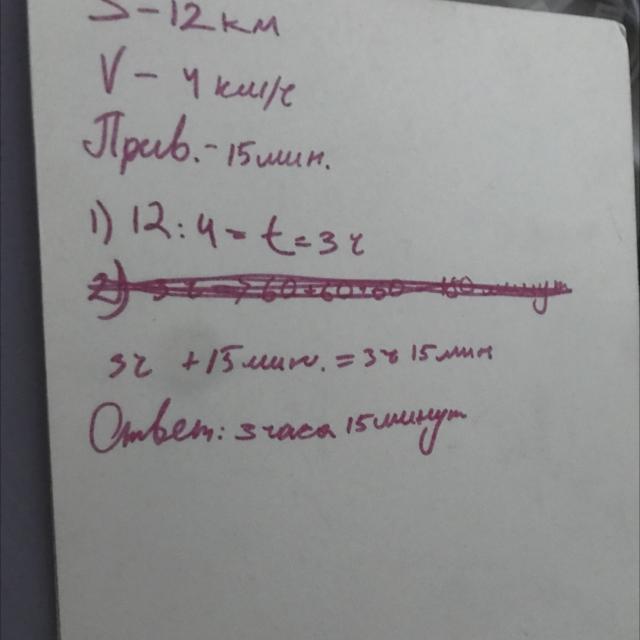 S - 12 км
V - 4 км/ч
Прив. - 15 мин.
1) 12 : 4 = t = 3 ч
2) 3 ч => 60+60+60 = 180 минут
3ч + 15 мин. = 3ч 15 мин
Ответ: 3 часа 15 минут